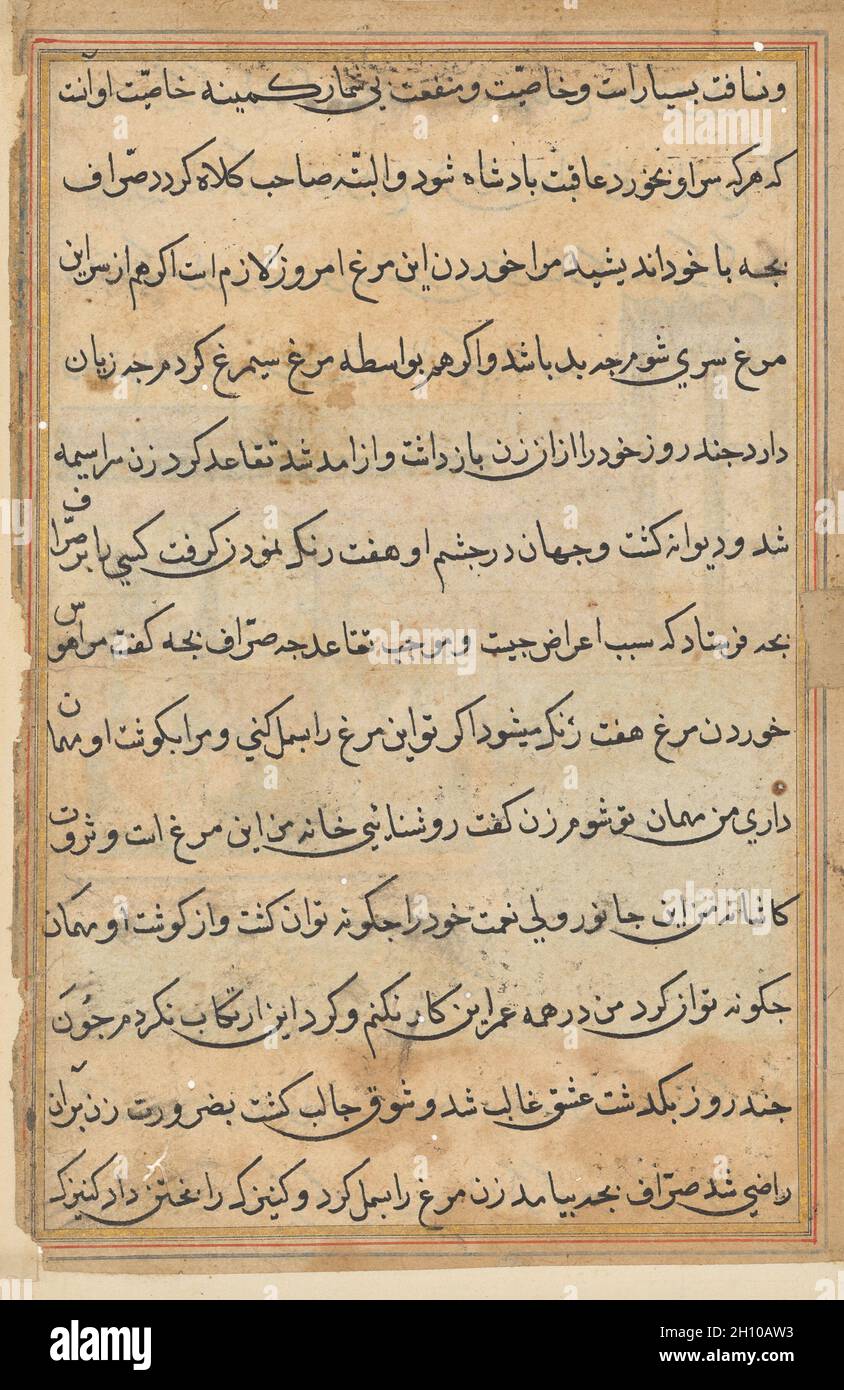 ونافت بسیار است و خاصیّت و منفعت بی شمار کمینه خاصیّت او آنست
که هرکه سر او بخورد عاقبت بادشاه شود والبتّه صاحب کلاه کردد صرّاف
بجه با خود اندیشید مرا خوردن این مرغ امروز لازم است اکر هم از سر این
مرغ سری شوم جه بد باشد واکر هم بواسطه مرغ سیمرغ کردم جه زیان
دارد جند روز خود را ازان زن بازداشت واز امد شد تقاعد کرد زن سراسیمه
شد و دیوانه کشت وجهان در جشم او هفت رنک نمودن کرفت کسی را بر صرّاف
بجه فرستاد که سبب اعراض جیست و موجب تقاعد جه صرّاف بجه کفت مرا هوس
خوردن مرغ هفت رنک میشود اکر تو این مرغ را بسمل کنی و مرا بکوشت او مهمان
داری من مهمان تو شوم زن کفت روشنائی خانه من این مرغ است وثروت
کاشانه من این جانور ولی نعمت خود را جکونه توان کشت واز کوشت او مهمان
جکونه توان کرد من در همه عمر این کار نکنم وکرد این ارتکاب نکردم جون
جند روز بکدشت عشق غالب شد و شوق جالب کشت بضرورت زن برآن
راضی شد صرّاف بجه بیامد زن مرغ را بسمل کرد و کنیزک را بختن داد کنیزک
alamy
alamy
Image ID: 2H10AW3
www.alamy.com